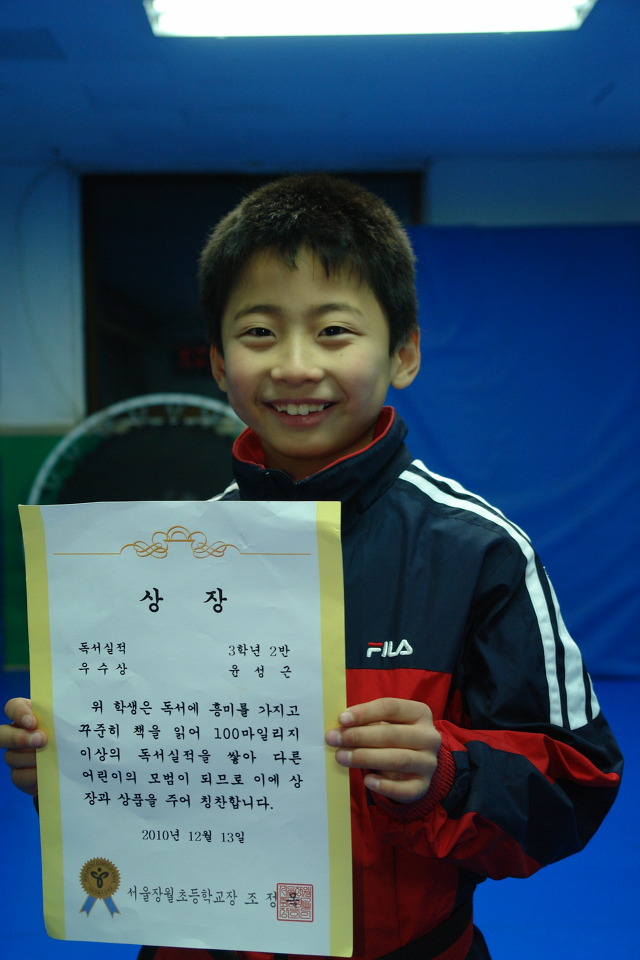 FILA
상 장
독서실적 3학년 2반
우수상 윤성근
위 학생은 독서에 흥미를 가지고
꾸준히 책을 읽어 100마일리지
이상의 독서실적을 쌓아 다른
어린이의 모범이 되므로 이에 상
장과 상품을 주어 칭찬합니다.
2010년 12월 13일
서울장월초등학교장 조 정